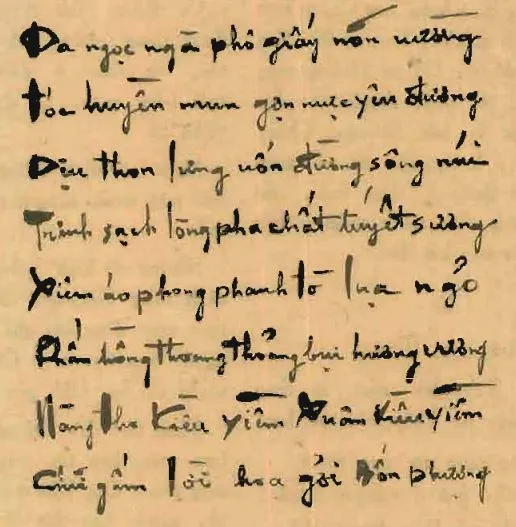 Da ngọc ngà phô giấy nõn nường
Tóc huyền mun gợn nực yêu đương
Dịu thon lưng uốn đường sông núi
Trinh sạch lòng pha chất tuyết sương
Xiêm áo phong phanh tờ lụa ngỏ
Phấn hồng thoang thoảng bụi hương vương
Nàng thơ kiều yiễm xuân kiều yiễm
Chữ gấm lời hoa gởi bốn phương